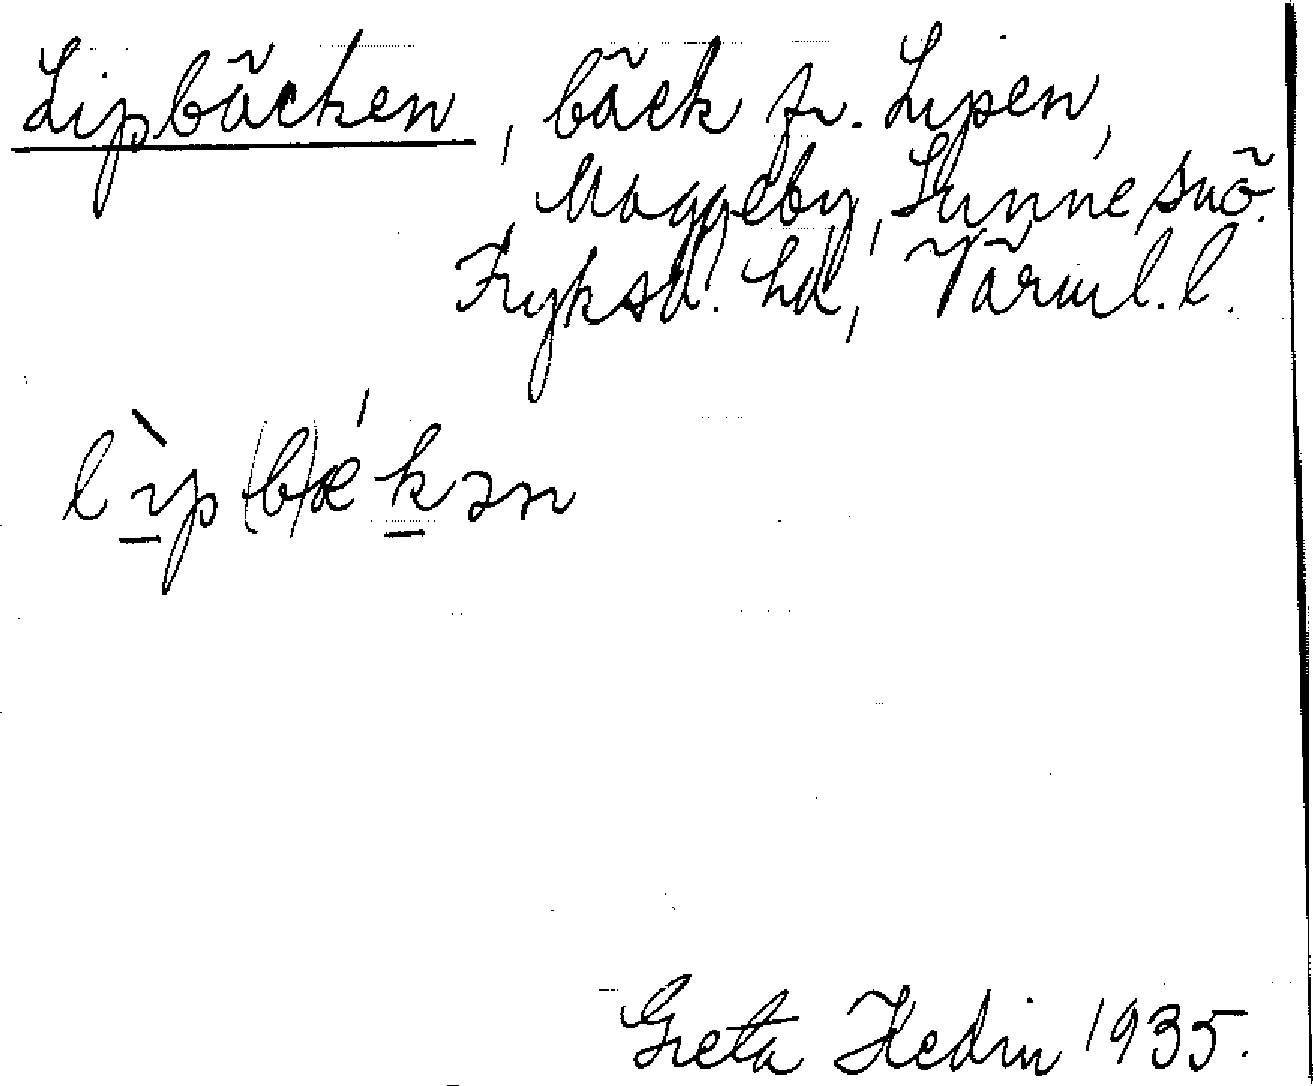 Lipbäcken, bäck fr. Lipen,
Maggeby, Sunne snö.
Fryksd. hd, Värml. l.
lìp(b)ækən
Greta Hedin 1935.